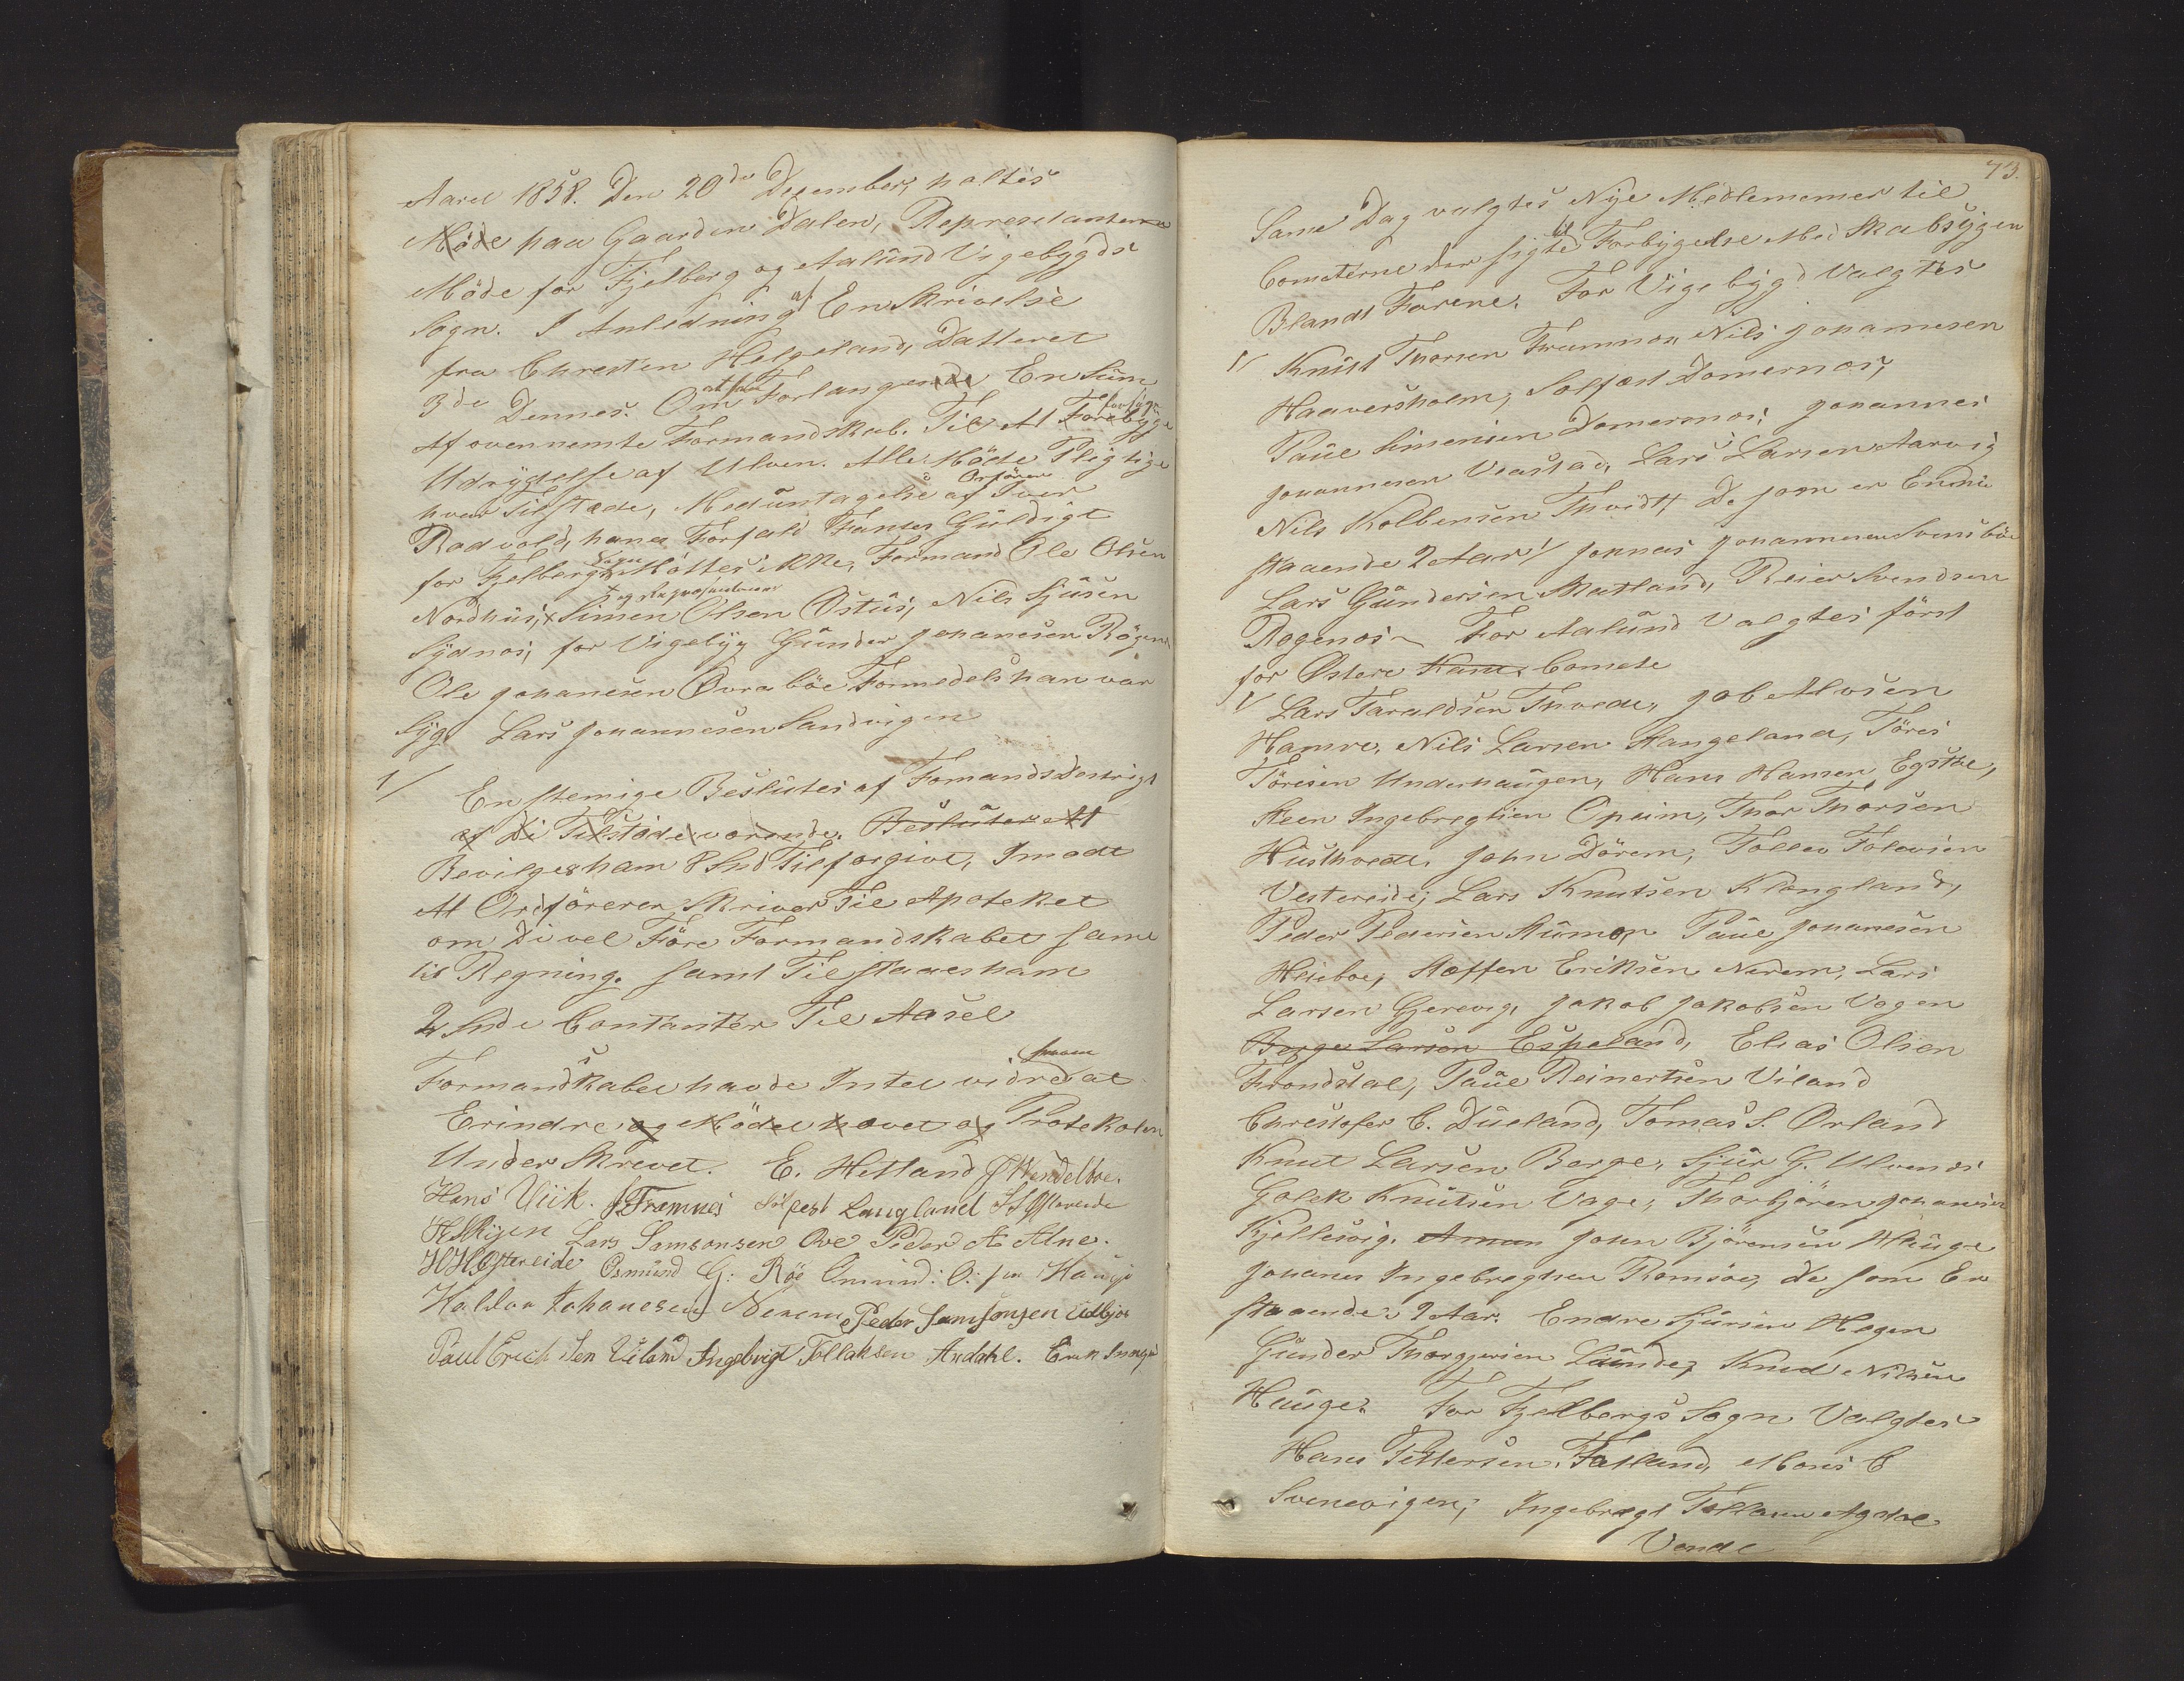 Aaret 1858. Den 20de Desember, holtes
Møde paa Gaarden Dalen, Represetanterne
Møde for Fjelberg og Aalund Vigebygds
Sogn. I Anledning af En Skrivelse
fra Chresten Helgeland, Datteret
3de Dennes. Om at faa Forlangende En Sum
Af ovennemte Formandskab. Til At Forebyge forsøge
Udrydelse af Ulven. Alle Møde Pligtige
hvar Tilstæde, Med untagelse af Orføren Iver
Radvold, hanes Forfald Fantes Guldigt
for Fjelbergs Sogn Møttes ikke, Formand Ole Olsen
Nordhus, og Representterne Simen Olsen Østus, Nils Sjusen
Sydnes, for Vigebyg Gunder Johanesen Røgenes
Ole Johanesen Øvrabøe Formedels han var
Syg. Lars Johannesen Sandvigen
1/ Enstemige Beslutes af Fomandsdestrigt
af Di Tilstæde værende. Besluter At
Bevilges ham 8 Snd Tilforgivt, Imode
At Ordføreren Skriver Til Apoteket
om Di vel Føre Formandskabet same
til Regning. samt Tilstaaes ham
2 Snde Contanter Til Aasel
Formandskabet havde Intet vidre at
Erindre og Mødet hævet og Protekolen
Under Skrevet. E. Hetland J Wendelboe.
Hans Viik. J. Framnes Sølfest Langland
H Skijen Lars Samsonsen Ove Peder A Alne.
H H Østereide Osmund G: Røe Omund: O: sen Hauge
Haldor Johanesen Nerem Peder Samsonsen Udbjoe
Poul Erich Sen Viland Ingebrigt Tollaksen Ardahl. Erik

73.
Same Dag valgtes Nye Medlemmer til
Cometerne der sigter til Forbygelse Med Skabsygen
Blandt Farene. For Vigebygd Valgtes
1/ Knut Thorsen Framnes, Nils Johannesen
Haaversholm, Solfæst Domernæs,
Paul Simensen Domersnes, Johannes
Johannesen Veastad, Lars Larsen Aarvig
Nils Kolbensen Thvidt. De som er Endnu
staaende 2 Aar / Johnas Johannesen Svensbøe
Lars Gundersen Matland, Reier Svendsen
Rogenæs. For Aalund Valgtes først
for Østere Comete
1/ Lars Taraldsen Thvede, Job Alvsen
Hamre, Nils Larsen Stangeland, Tøres
Tøresen Underhaugen, Hans Hansen Egstøe,
Steen Ingebregtsen Opeim, Thor Thorsen
Husthvedt, John Dørem, Tollev Tolevsen
Vestereide, Lars Knutsen Klængland,
Peder Pedersen Stumoe Paul Johanesen
Heiebøe, Stoffen Eriksen Nerem, Lars
Larsen Gjerevig, Jakob Jakobsen Vogen
Berge Larsen Espeland, Elias Olsen
Trondstal, Paul Reinertsen Viland
Chrestofer C. Dueland, Tomas S. Ørland
Knut Larsen Berge, Sjur G. Ulvenes
Golek Knutsen Vage, Thorbjøren Johanesen
Kjellesvig. Amun John Bjørensen Hauge
Johanes Ingebregtsen Romsøe, de som Er
staaende 2 Aar. Endre Sjursen Hegen
Gunder Thorgjersen Lunde, Knud Nilsen
Hauge. For Fjelbergs Sogn Valgtes
Hans Pettersen Fatland, Mons C
Svenevigen, Ingebregt Tollaksen
Vande